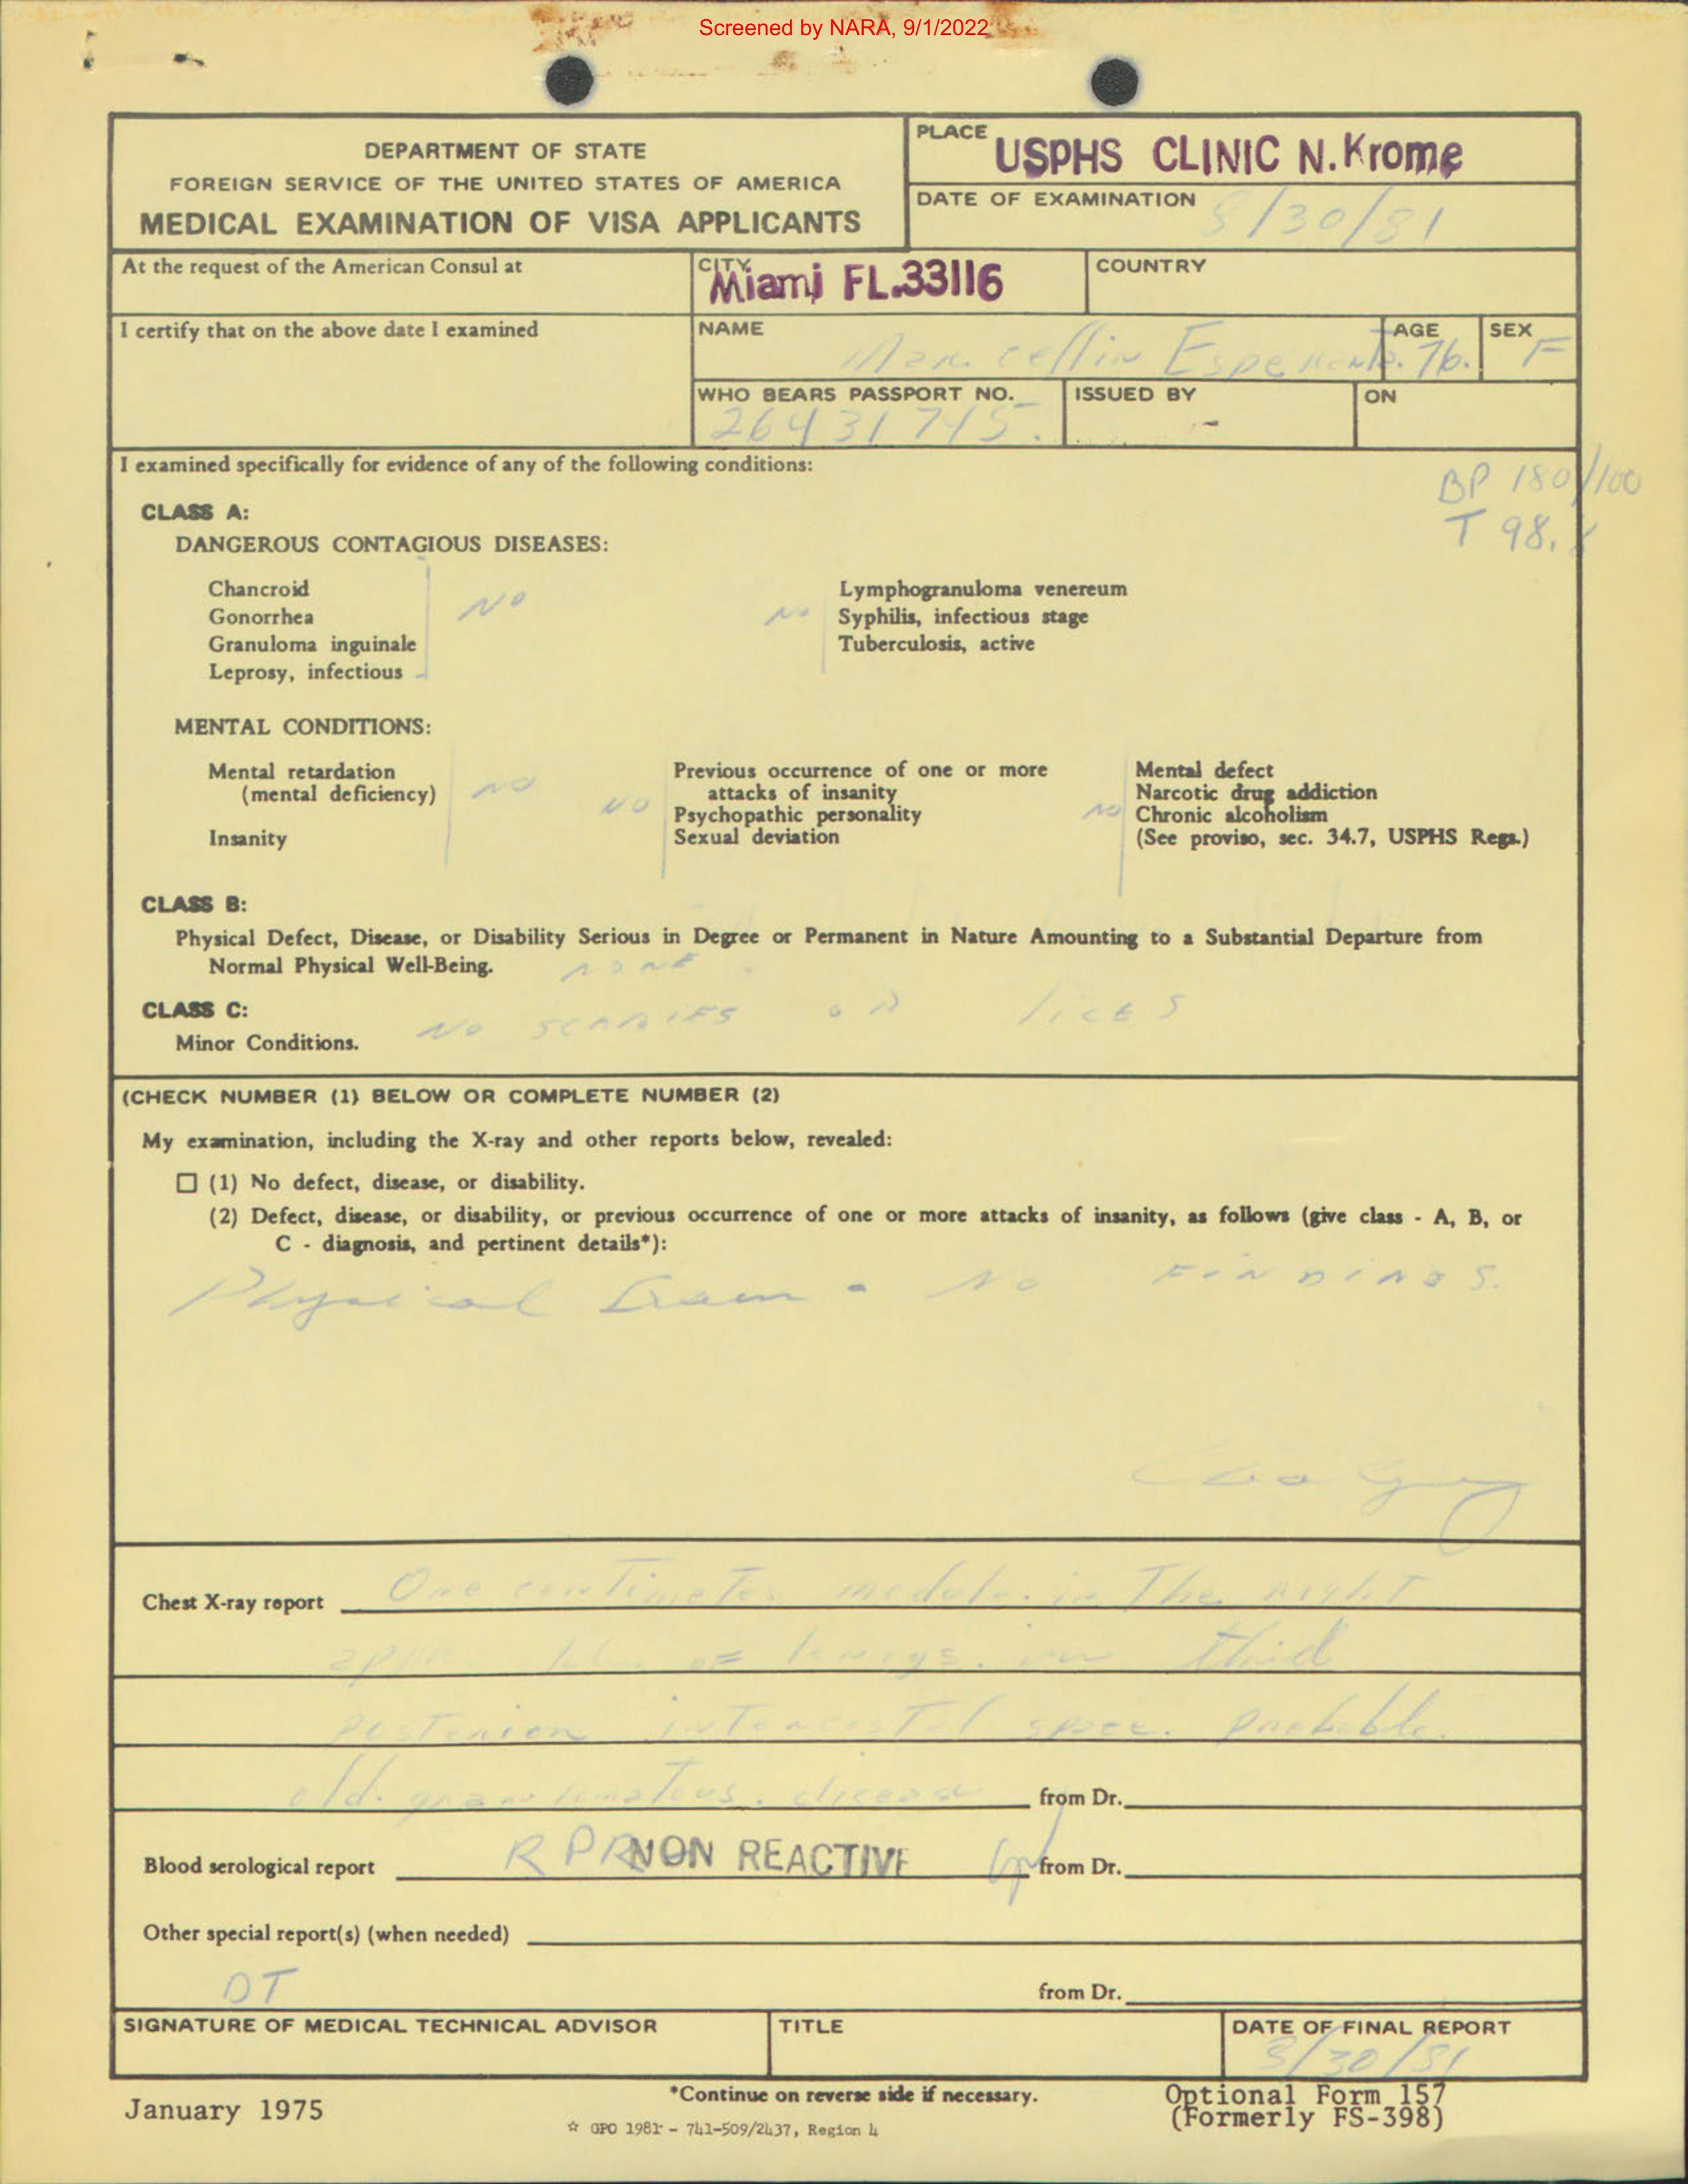 Screened by NARA, 9/1/2022
DEPARTMENT OF STATE
FOREIGN SERVICE OF THE UNITED STATES OF AMERICA
MEDICAL EXAMINATION OF VISA APPLICANTS
PLACE USPHS CLINIC N.Krome
DATE OF EXAMINATION 8/30/81
At the request of the American Consul at
CITY Miami FL.33116
COUNTRY
I certify that on the above date I examined
NAME Marcellin
AGE 76.
SEX F
WHO BEARS PASSPORT NO. 26431745.
ISSUED BY -
ON
I examined specifically for evidence of any of the following conditions:
BP 180/100
T 98.
CLASS A:
DANGEROUS CONTAGIOUS DISEASES:
Chancroid
Gonorrhea
Granuloma inguinale
Leprosy, infectious
NO
NO
Lymphogranuloma venereum
Syphilis, infectious stage
Tuberculosis, active
MENTAL CONDITIONS:
Mental retardation
(mental deficiency)
Insanity
NO
NO
Previous occurrence of one or more
attacks of insanity
Psychopathic personality
Sexual deviation
NO
Mental defect
Narcotic drug addiction
Chronic alcoholism
(See proviso, sec. 34.7, USPHS Regs.)
CLASS B:
Physical Defect, Disease, or Disability Serious in Degree or Permanent in Nature Amounting to a Substantial Departure from
Normal Physical Well-Being. NONE
CLASS C: NO SCABIES OR LICES
Minor Conditions.
(CHECK NUMBER (1) BELOW OR COMPLETE NUMBER (2)
My examination, including the X-ray and other reports below, revealed:
☐ (1) No defect, disease, or disability.
(2) Defect, disease, or disability, or previous occurrence of one or more attacks of insanity, as follows (give class - A, B, or
C - diagnosis, and pertinent details*):
Physical Exam - No FINDINGS.
Chest X-ray report One centimeter nodule in The right
of lungs. in third
posterion intercostal space. probable
old. granulomatous. disease from Dr.
Blood serological report RPR NON REACTIVE from Dr.
Other special report(s) (when needed)
DT
from Dr.
SIGNATURE OF MEDICAL TECHNICAL ADVISOR
TITLE
DATE OF FINAL REPORT
8/30/81
January 1975
*Continue on reverse side if necessary.
☆ GPO 1981 - 741-509/2437, Region 4
Optional Form 157
(Formerly FS-398)